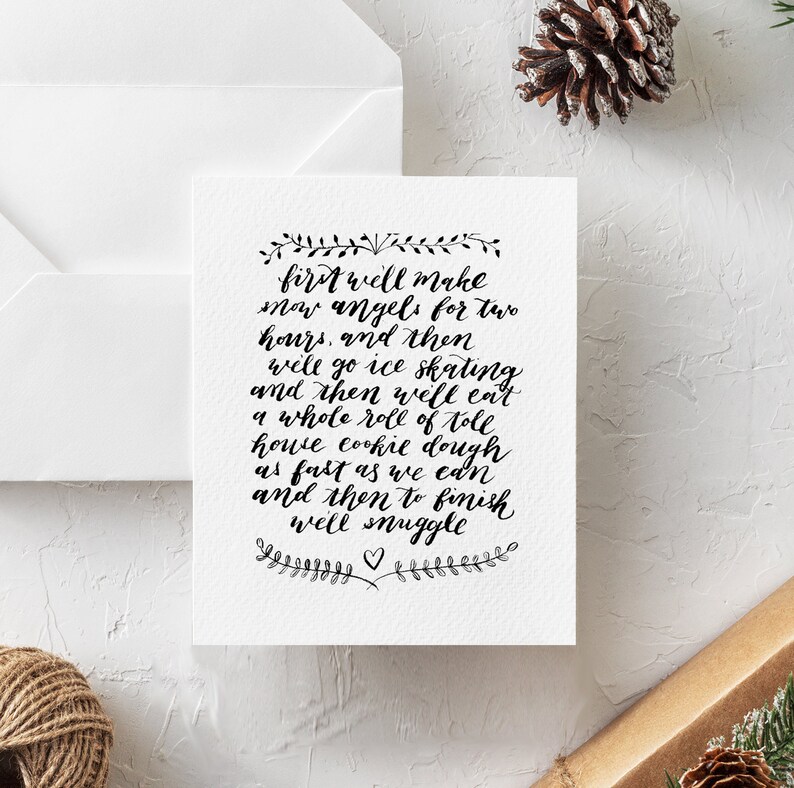 first we'll make
snow angels for two
hours, and then
we'll go ice skating
and then we'll eat
a whole roll of toll
house cookie dough
as fast as we can
and then to finish
we'll snuggle